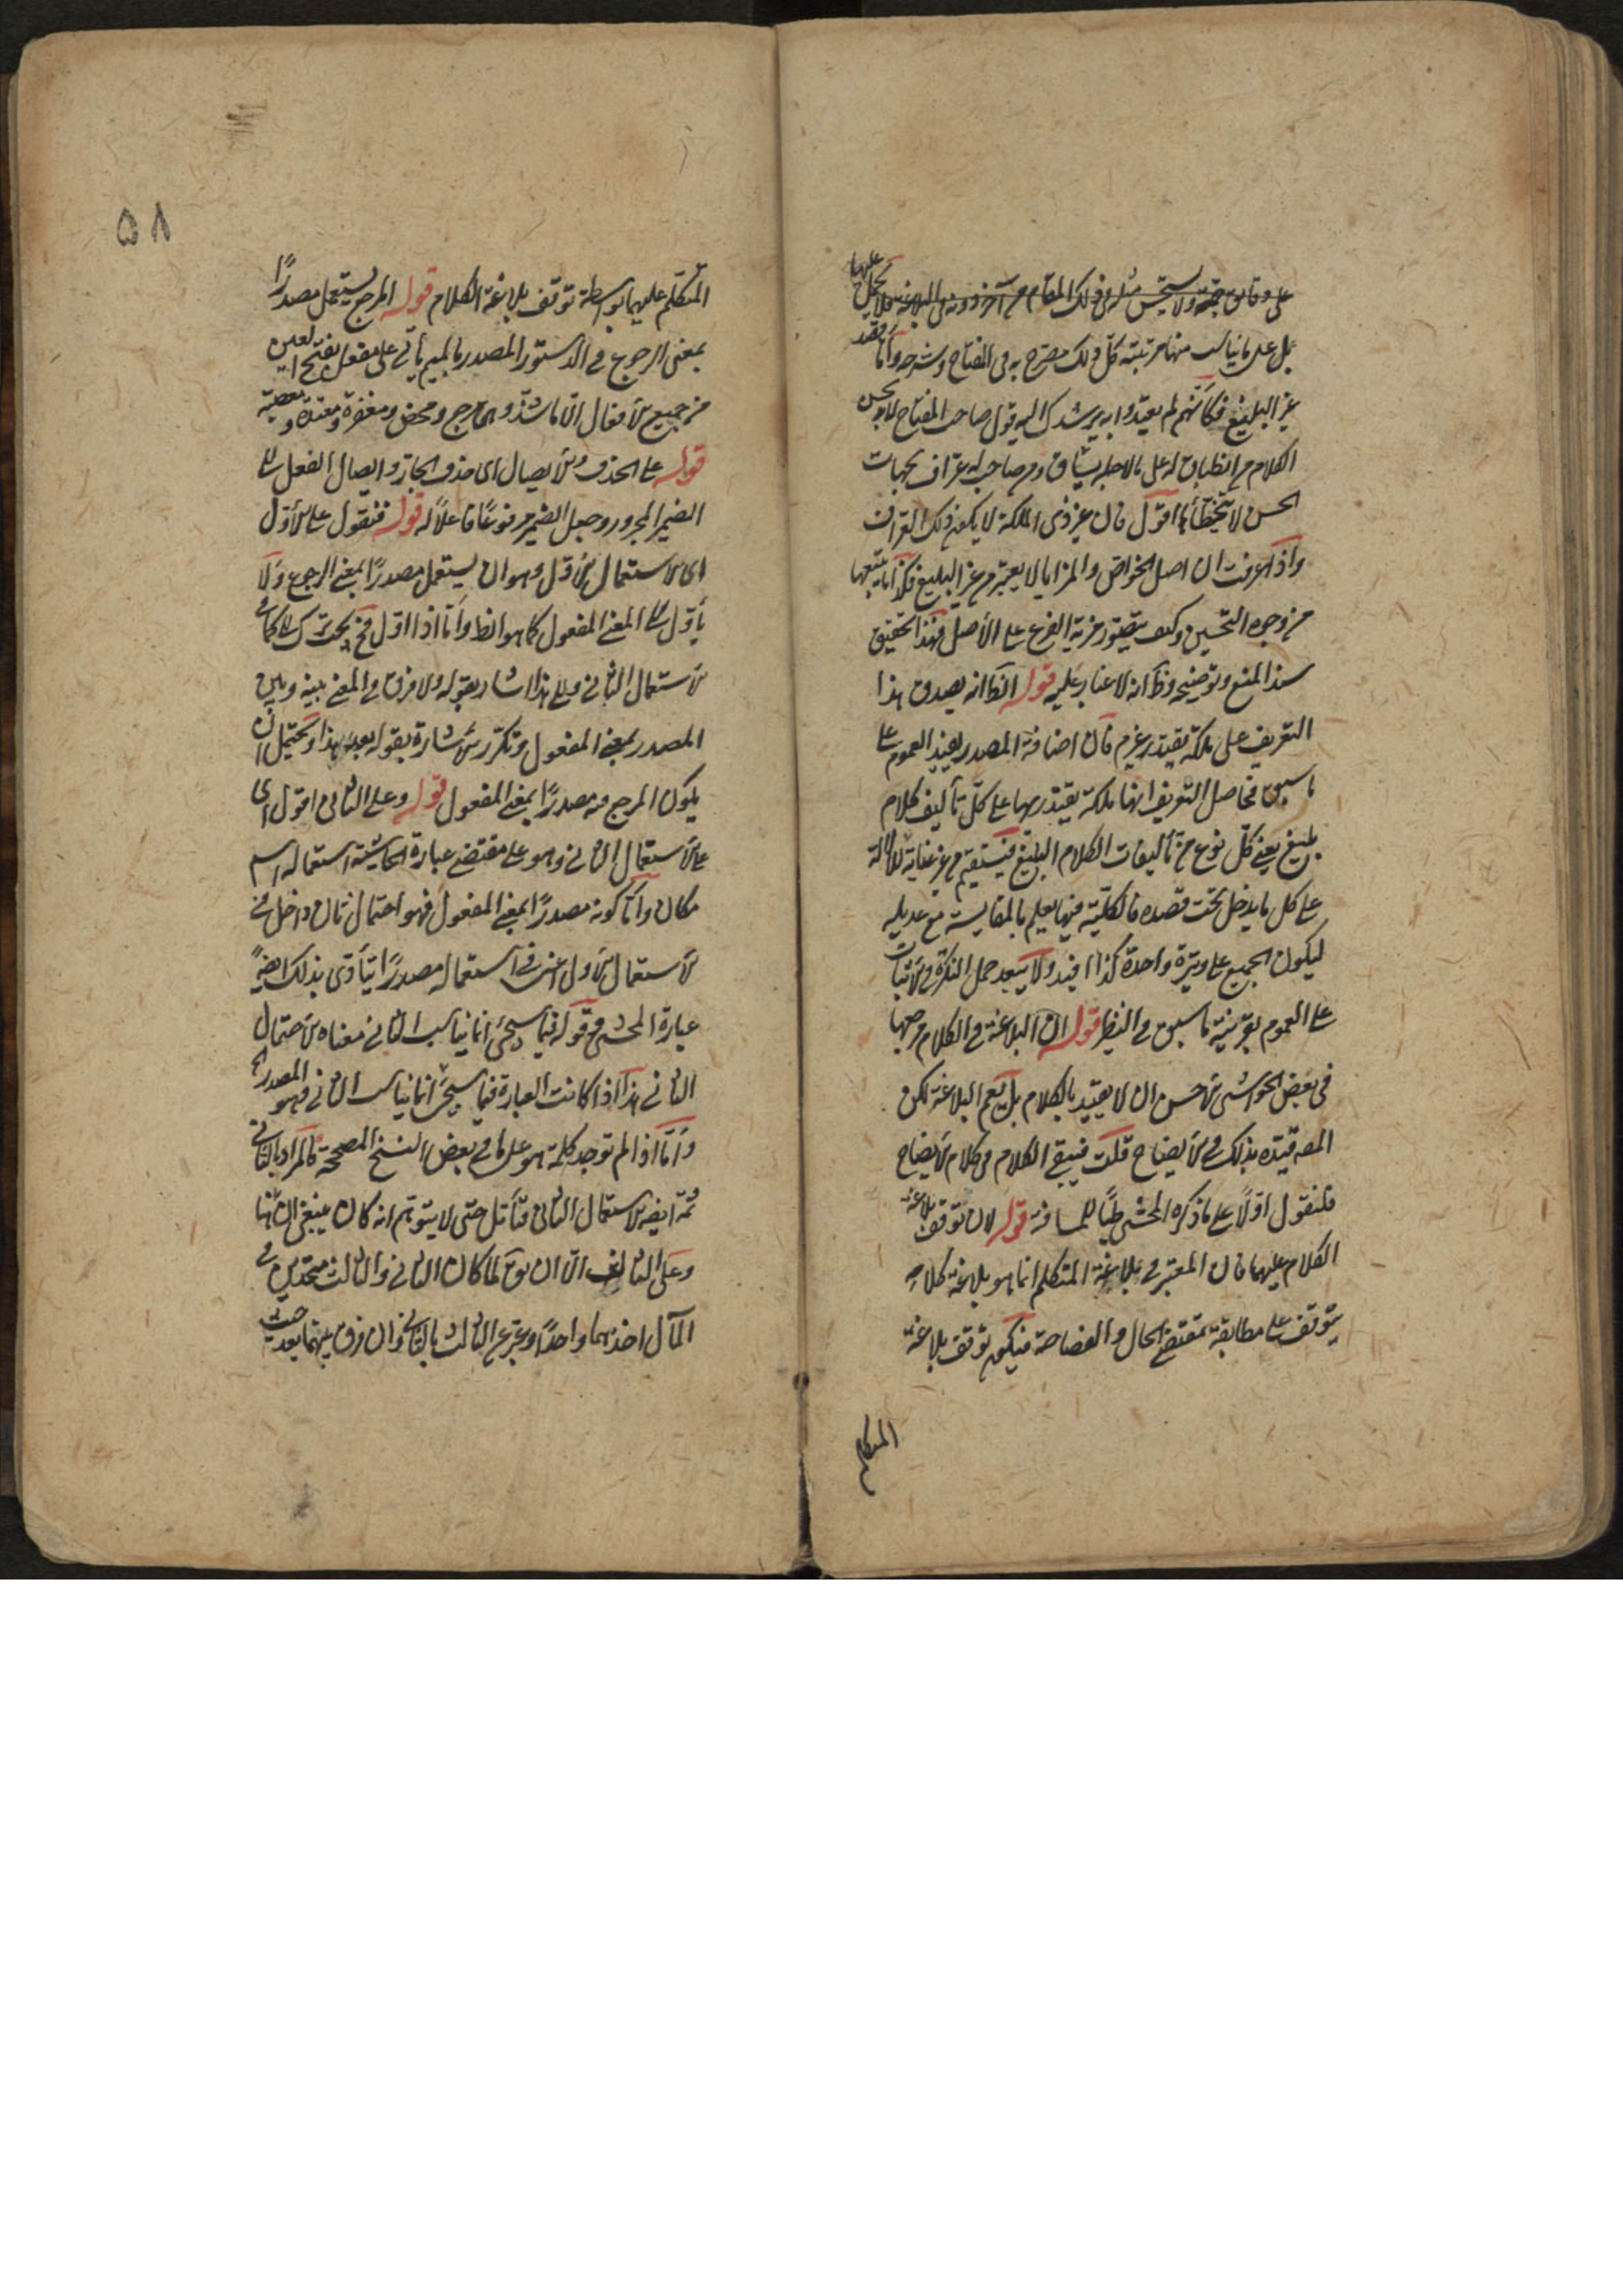 على وفاق جهة ولا يستحسن مثله في ذلك المقام من آخر دونه في البلاغة فلا يحمل عليها
بل على ما يناسب منها مرتبته كل ذلك مصرح به في المفتاح وشرحه وأما قصد
غير البليغ فكأنهم لم يعتدوا به يرشدك اليه قول صاحب المفتاح لا بحسن
الكلام من انطباق له على ما لاجله يساق ومن صاحب له عراف بجهات
الحسن لا يتخطاها اقول فان غير ذي الملكة لا يكون ذلك العراف
واذا عرفت ان اصل الخواص والمزايا لا يعتبر من غير البليغ فكذا ما يتبعها
من وجوه التحسين وكيف يتصور مزية الفرع على الأصل فهذا تحقيق
سند المنع وتوضيحه وظ انه لا غبار عليه قوله الظ انه يصدق هذا
التعريف على ملكة يقتدر فان اضافة المصدر يفيد العموم على
ما سبق فحاصل التعريف انها ملكة يقتدر بها على كل تأليف كلام
بليغ يعني كل نوع من تأليفات الكلام البليغ فيستقيم من غير عناية للدلالة
على كل ما يدخل تحت قصده فالكلية فيها يعلم بالمقايسة مع عديله
ليكون الجميع على وتيرة واحدة كذا افيد ولا يبعد حمل النكرة في الاثبات
على العموم بقرينة ما سبق في النظير قوله ان البلاغة في الكلام مرجعها
في بعض الحواشي الاحسن ان لا يقيد بالكلام بل يعم البلاغة لكن
المص قيده بذلك في الايضاح قلت فيبقى الكلام في كلام الايضاح
فلنقول اولاً على ما ذكره المحشي طيًا للمسافة قوله لان توقف بلاغة
الكلام عليهما فان المعتبر في بلاغة المتكلم انما هو بلاغة كلامه
يتوقف على مطابقة مقتضى الحال والفصاحة فيكون توقف بلاغة
المتكلم
٥٨
المتكلم عليهما بواسطة توقف بلاغة الكلام قوله المرجع يستعمل مصدرًا
بمعنى الرجوع في الدستور المصدر بالميم يأتي على مفعل بفتح العين
من جميع الافعال الا ما شذ وهي مرجع ومحيض ومغفرة ومعذرة ومعصية
قوله على الحذف والايصال اى حذف الجار وايصال الفعل الى
الضمير المجرور وجعل الضمير مرفوعًا فاعلاً له قوله فنقول على الاول
اى الاستعمال الاول وهو ان يستعمل مصدرًا بمعنى الرجوع ولا
يأول الى المعنى المفعول كما هو الظ وأما اذا اول فح يتحد
الاستعمال الثاني والى هذا اشار بقوله ولا فرق في المعنى بينه وبين
المصدر بمعنى المفعول وتكرر الاشارة بقوله بعد هذا ويحتمل ان
يكون المرجع منه مصدرًا بمعنى المفعول قوله وعلى الثاني اقول اى
على الاستعمال الثاني وهو على مقتضى عبارة الحاشية استعماله اسم
مكان وأما كونه مصدرًا بمعنى المفعول فهو احتمال ثان داخل في
الاستعمال الاول اعني في استعماله مصدرًا ينادى بذلك ايضًا
عبارة المحشي في قوله فيما سيجئ انما يناسب الثاني معناه الاحتمال
الثاني هذا اذا كانت العبارة فيما سيجئ انما يناسب الثاني وهو المصدر الخ
وأما اذا لم توجد كلمة هو على ما في بعض النسخ المصححة فالمراد بالثاني
ثمة ايضا الاستعمال الثاني فتأمل حتى لا يتوهم انه كان ينبغي ان
وعلى الثالث الا ان يق لما كان الثاني والثالث متحدين في
المآل اخذهما واحدًا وعبر عن الثالث بالثاني وان فرق بينهما بعد حيث